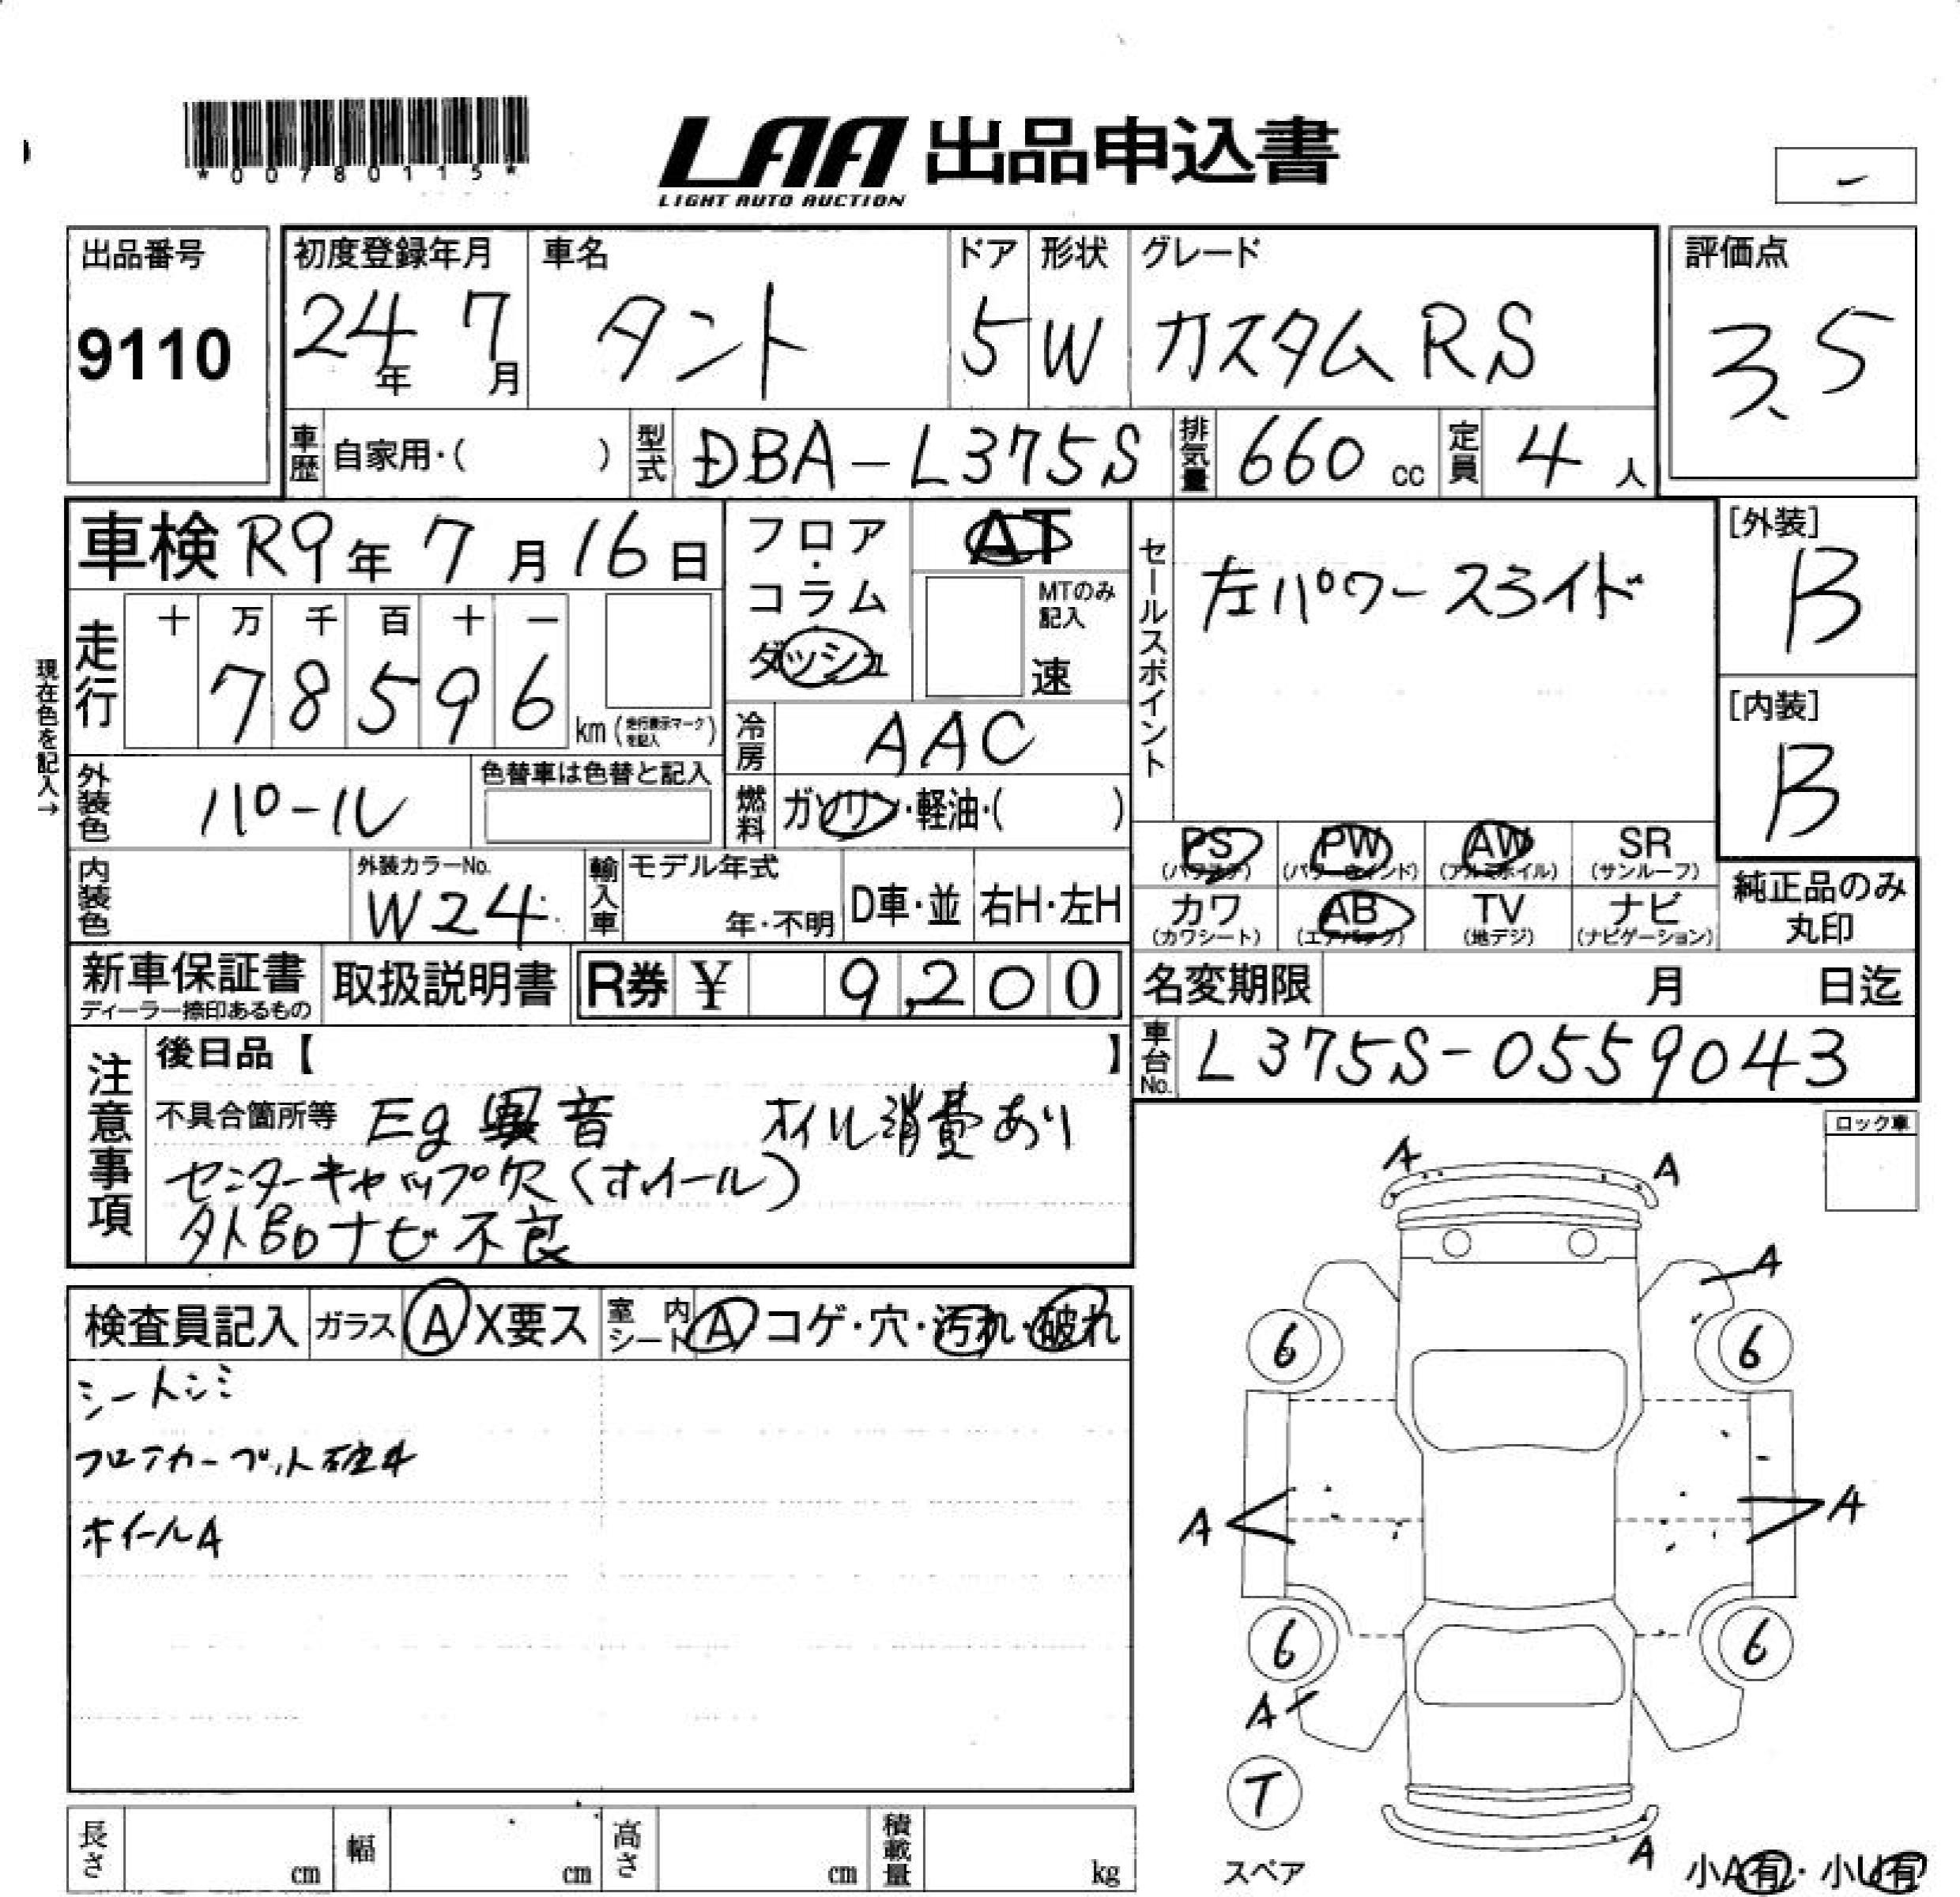 *00780115*
LAA 出品申込書
LIGHT AUTO AUCTION
出品番号
9110
初度登録年月
24年 7月
車名
タント
ドア
5
形状
W
グレード
カスタム RS
評価点
3.5
車歴 自家用・( )
型式 DBA-L375S
排気量 660 cc
定員 4 人
車検 R9年 7月 16日
フロア・コラム
ダッシュ
AT
MTのみ記入
速
セールスポイント
左パワースライド
[外装]
B
[内装]
B
現在色を記入→
走行
十 万 千 百 十 一
7 8 5 9 6
km (走行表示マークを記入)
冷房 AAC
外装色 パール
色替車は色替と記入
燃料 ガソリン・軽油・( )
PS (パワステ)
PW (パワーウインド)
AW (アルミホイル)
SR (サンルーフ)
カワ (カワシート)
AB (エアバック)
TV (地デジ)
ナビ (ナビゲーション)
純正品のみ丸印
内装色
外装カラーNo.
W24
輸入車
モデル年式
年・不明
D車・並
右H・左H
新車保証書
ディーラー捺印あるもの
取扱説明書
R券 ¥ 9,200
名変期限 月 日迄
車台No. L375S-0559043
注意事項
後日品【 】
不具合箇所等 Eg異音 オイル消費あり
センターキャップ欠(ホイール)
外品ナビ不良
ロック車
検査員記入
ガラス A X要ス
室内シート A コゲ・穴・汚れ・破れ
シートシミ
フロアカーペット破れ
ホイールA
A A
A
6 6
A A
6 6
A
T
スペア
A
小A有・小U有
長さ cm
幅 cm
高さ cm
積載量 kg